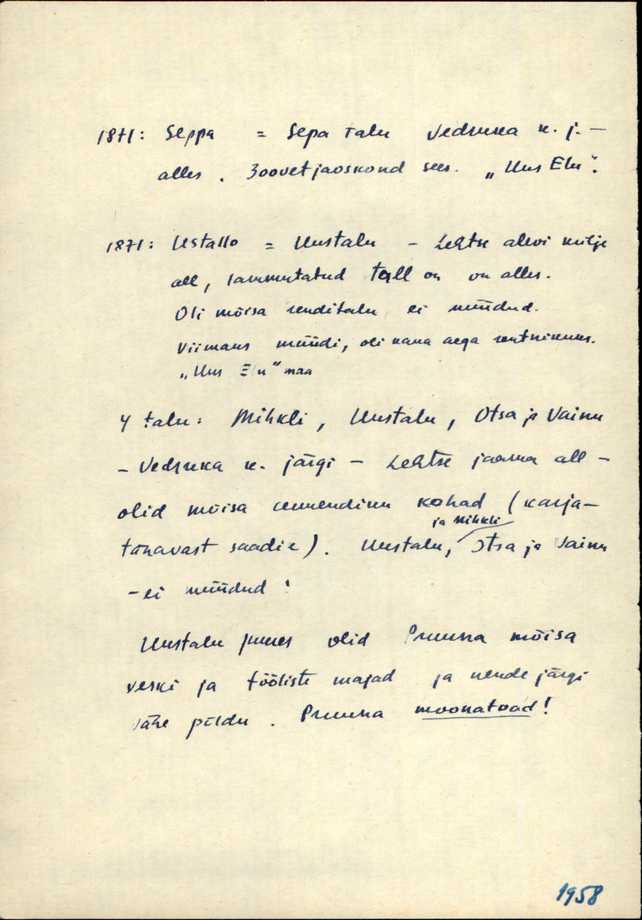 1871: Seppa = Sepa talu Vedruka k. j. –
alles. Zoovetjaoskond sees. „Uus Elu".
1871: Ustallo = Uustalu – Lehtse alevi külje
all, lammutatud tall on alles.
Oli mõisa renditalu, ei müüdud.
Viimaks müüdi, oli kaua aega rentnikuks.
„Uus Elu" maa
4 talu: Mihkli, Uustalu, Otsa ja Vainu
– Vedruka k. järgi – Lehtse jaama all –
olid mõisa kohad (karja-
tänavast saadik). Uustalu, ja Mihkli Otsa ja Vainu
– ei müüdud!
Uustalu juures olid Pruuna mõisa
veski ja tööliste majad ja nende järgi
vähe põldu. Pruuna moonatoad!
1958